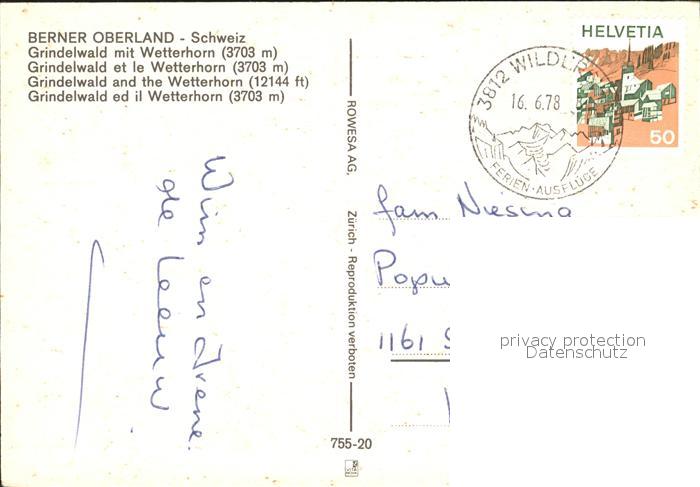 BERNER OBERLAND - Schweiz
Grindelwald mit Wetterhorn (3703 m)
Grindelwald et le Wetterhorn (3703 m)
Grindelwald and the Wetterhorn (12144 ft)
Grindelwald ed il Wetterhorn (3703 m)
Wim en Irene
de Leeuw.
ROWESA AG, Zürich - Reproduktion verboten
755-20
HELVETIA
50
3812 WILD
16. 6.78
FERIEN-AUSFLÜGE
fam Niesma
Popu
1161 S
privacy protection
Datenschutz